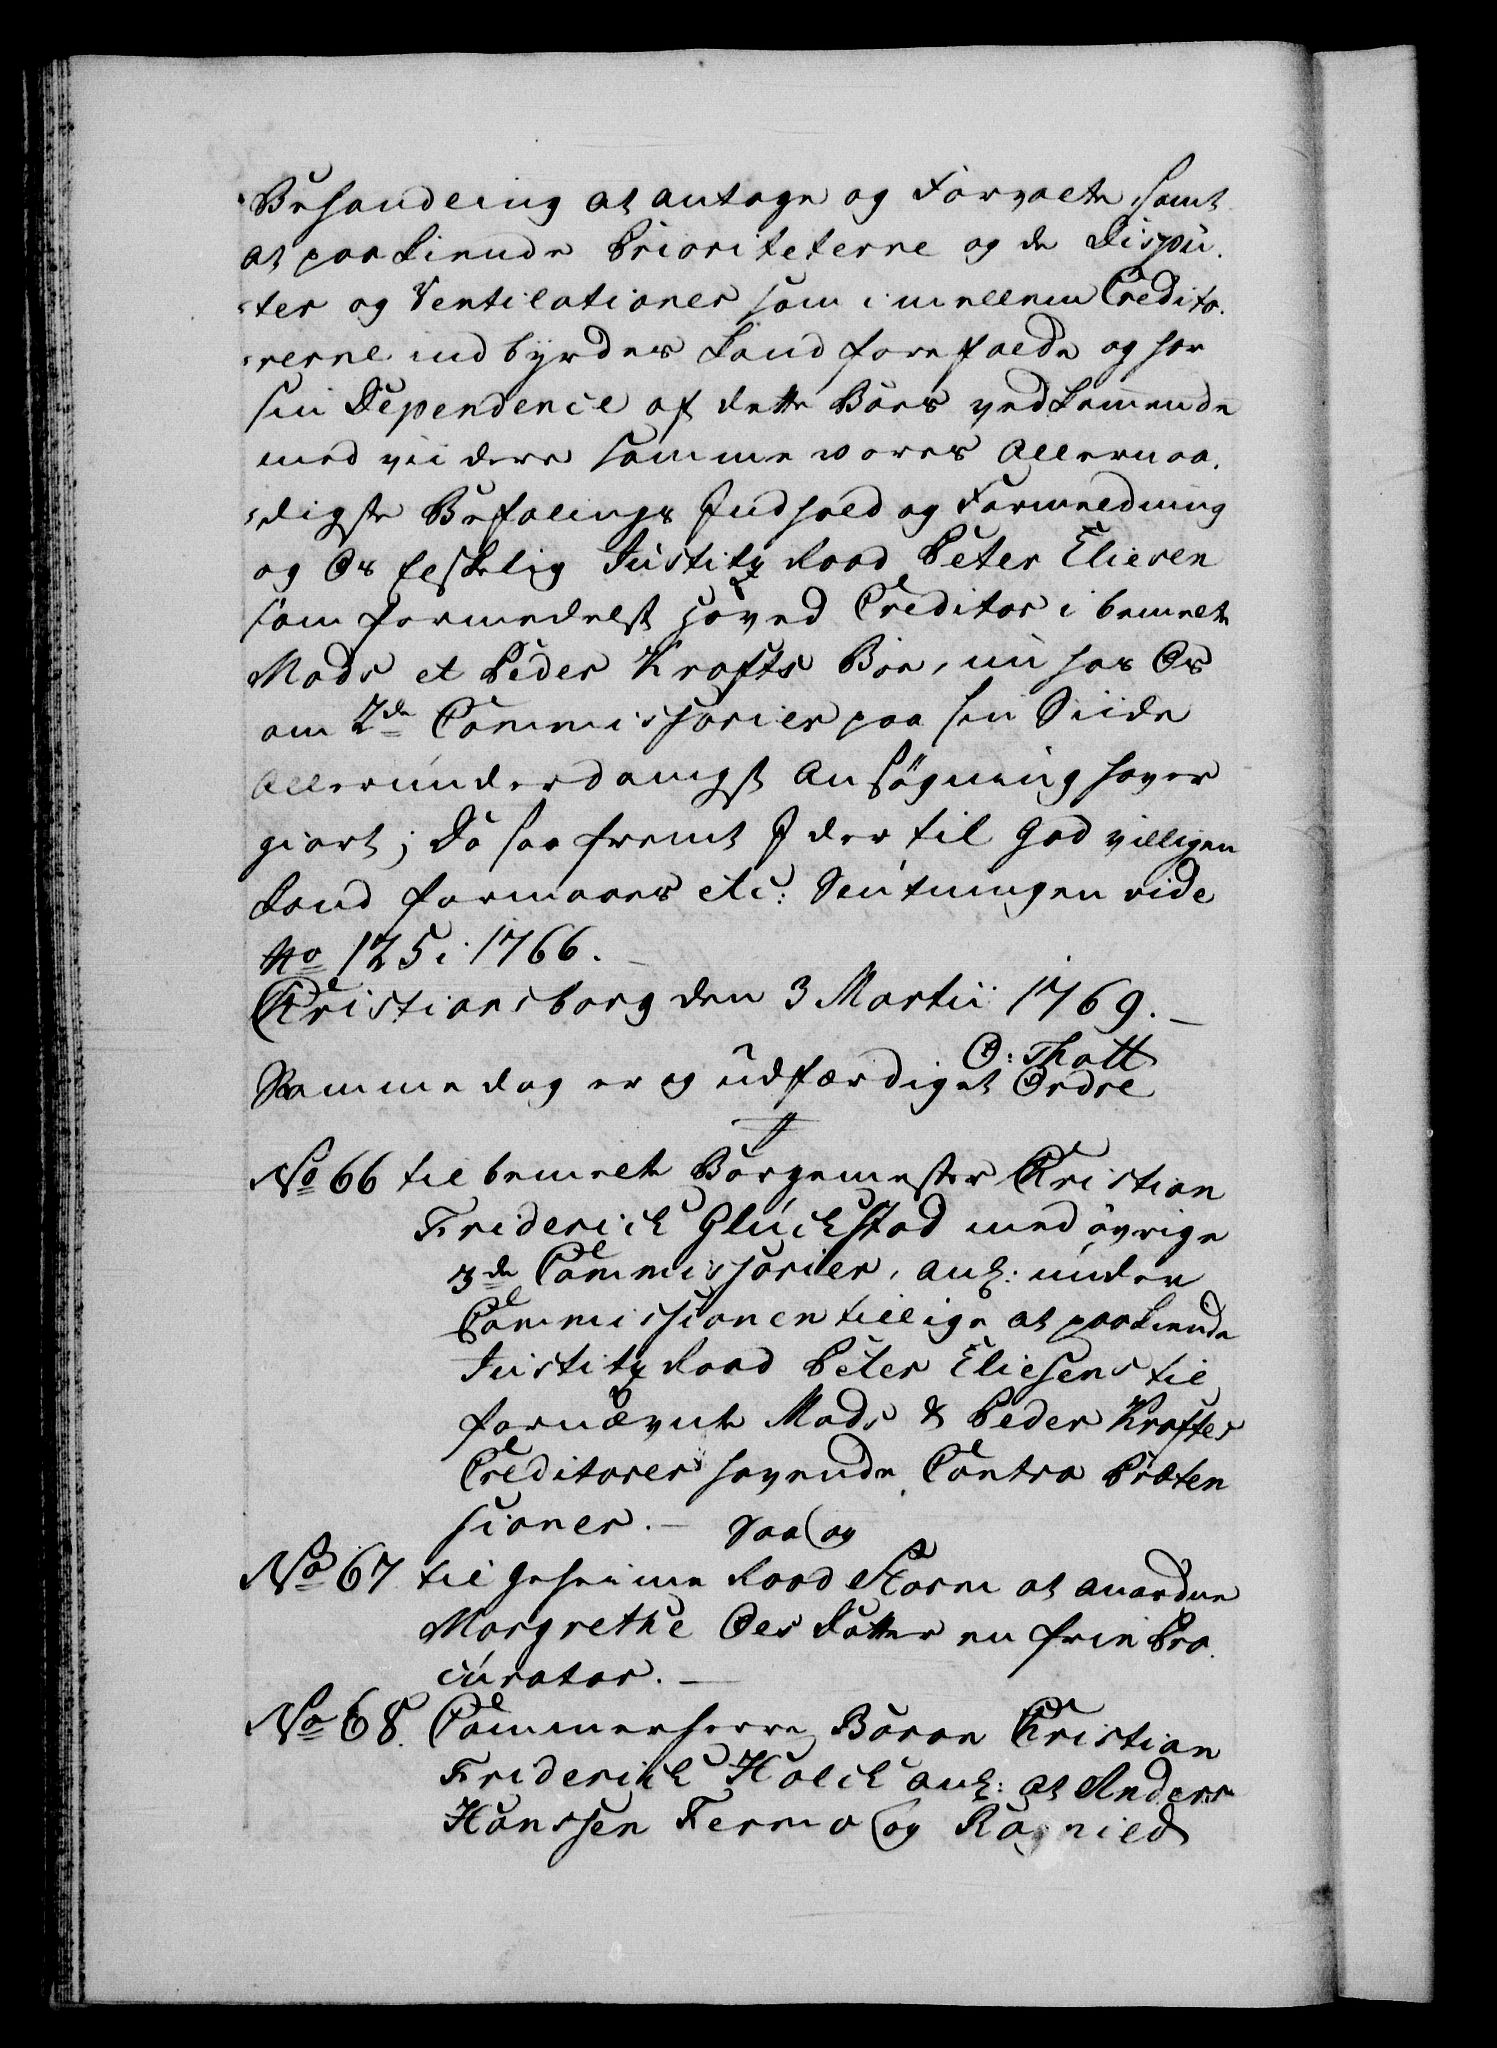 Behandling at antage og Forvalte, samt
at paakiende Prioriteterne og de Dispu-
-ter og Ventilationer som imellem Credito-
-rerne indbyrdes kand forefalde og har
sin Dependence af dette Boes vedkommende
med viidere samme vores Allernaa-
-digste Befalings Indhold og Formeldning
og Os elskelig Justitz Raad Peter Eliesen
som formedelst hoved Creditor i bemelte
Mads et Peder Krafts Boe, nu hos Os
om 2de Commissarier paa sin Siide
Allerunderdanigst Ansøgning haver
giort; Da saa fremt I dertil Godvilligen
kand formaaes etc: Slutningen vide
No 125 i 1766.
Christiansborg den 3 Martii 1769.
O: Thott
Samme dag er og udfærdiget Ordre
No 66 til bemelte Borgemester Christian
Friderich Glückstad med øvrige
3de Commissarier, anl: under
Commissionen tillige at paakiende
Justitz Raad Peter Eliesens til
fornævnte Mads & Peder Kraftes
Creditorer havende Contra Præten
sioner. Saa og
No 67 til Geheime Raad Storm at anordne
Margrethe Oles Datter en frie Pro-
curator.
No 68. Cammerherre Baron Christian
Friderich Holck anl: at Anders
Hanssen Fermo og Ragnild